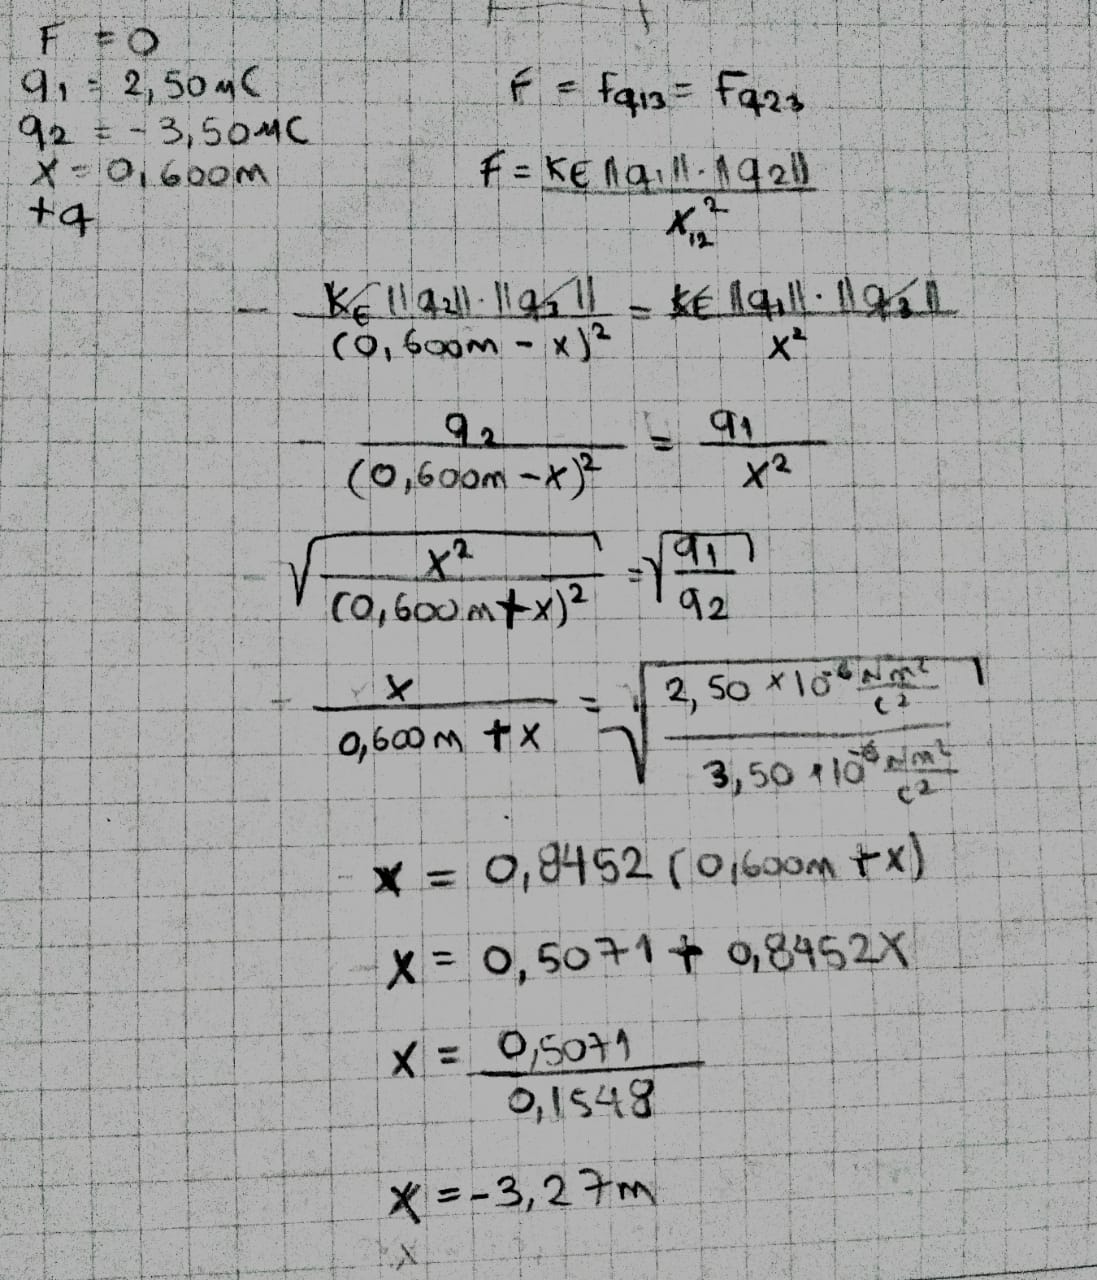 F = 0
q₁ = 2,50 μC
q₂ = -3,50 μC
X = 0,600m
+q
F = Fq₁₃ = Fq₂₃
F = KE ||q₁||·||q₂|| / X₁₂²
- KE ||q₂||·||q₃|| / (0,600m - x)² = KE ||q₁||·||q₃|| / x²
- q₂ / (0,600m - x)² = q₁ / x²
- √(x² / (0,600m + x)²) = √(q₁ / q₂)
- x / (0,600m + x) = √(2,50 × 10⁻⁶ Nm²/C² / 3,50 × 10⁻⁶ Nm²/C²)
- x = 0,8452 (0,600m + x)
- x = 0,5071 + 0,8452X
x = 0,5071 / 0,1548
x = -3,27m
x